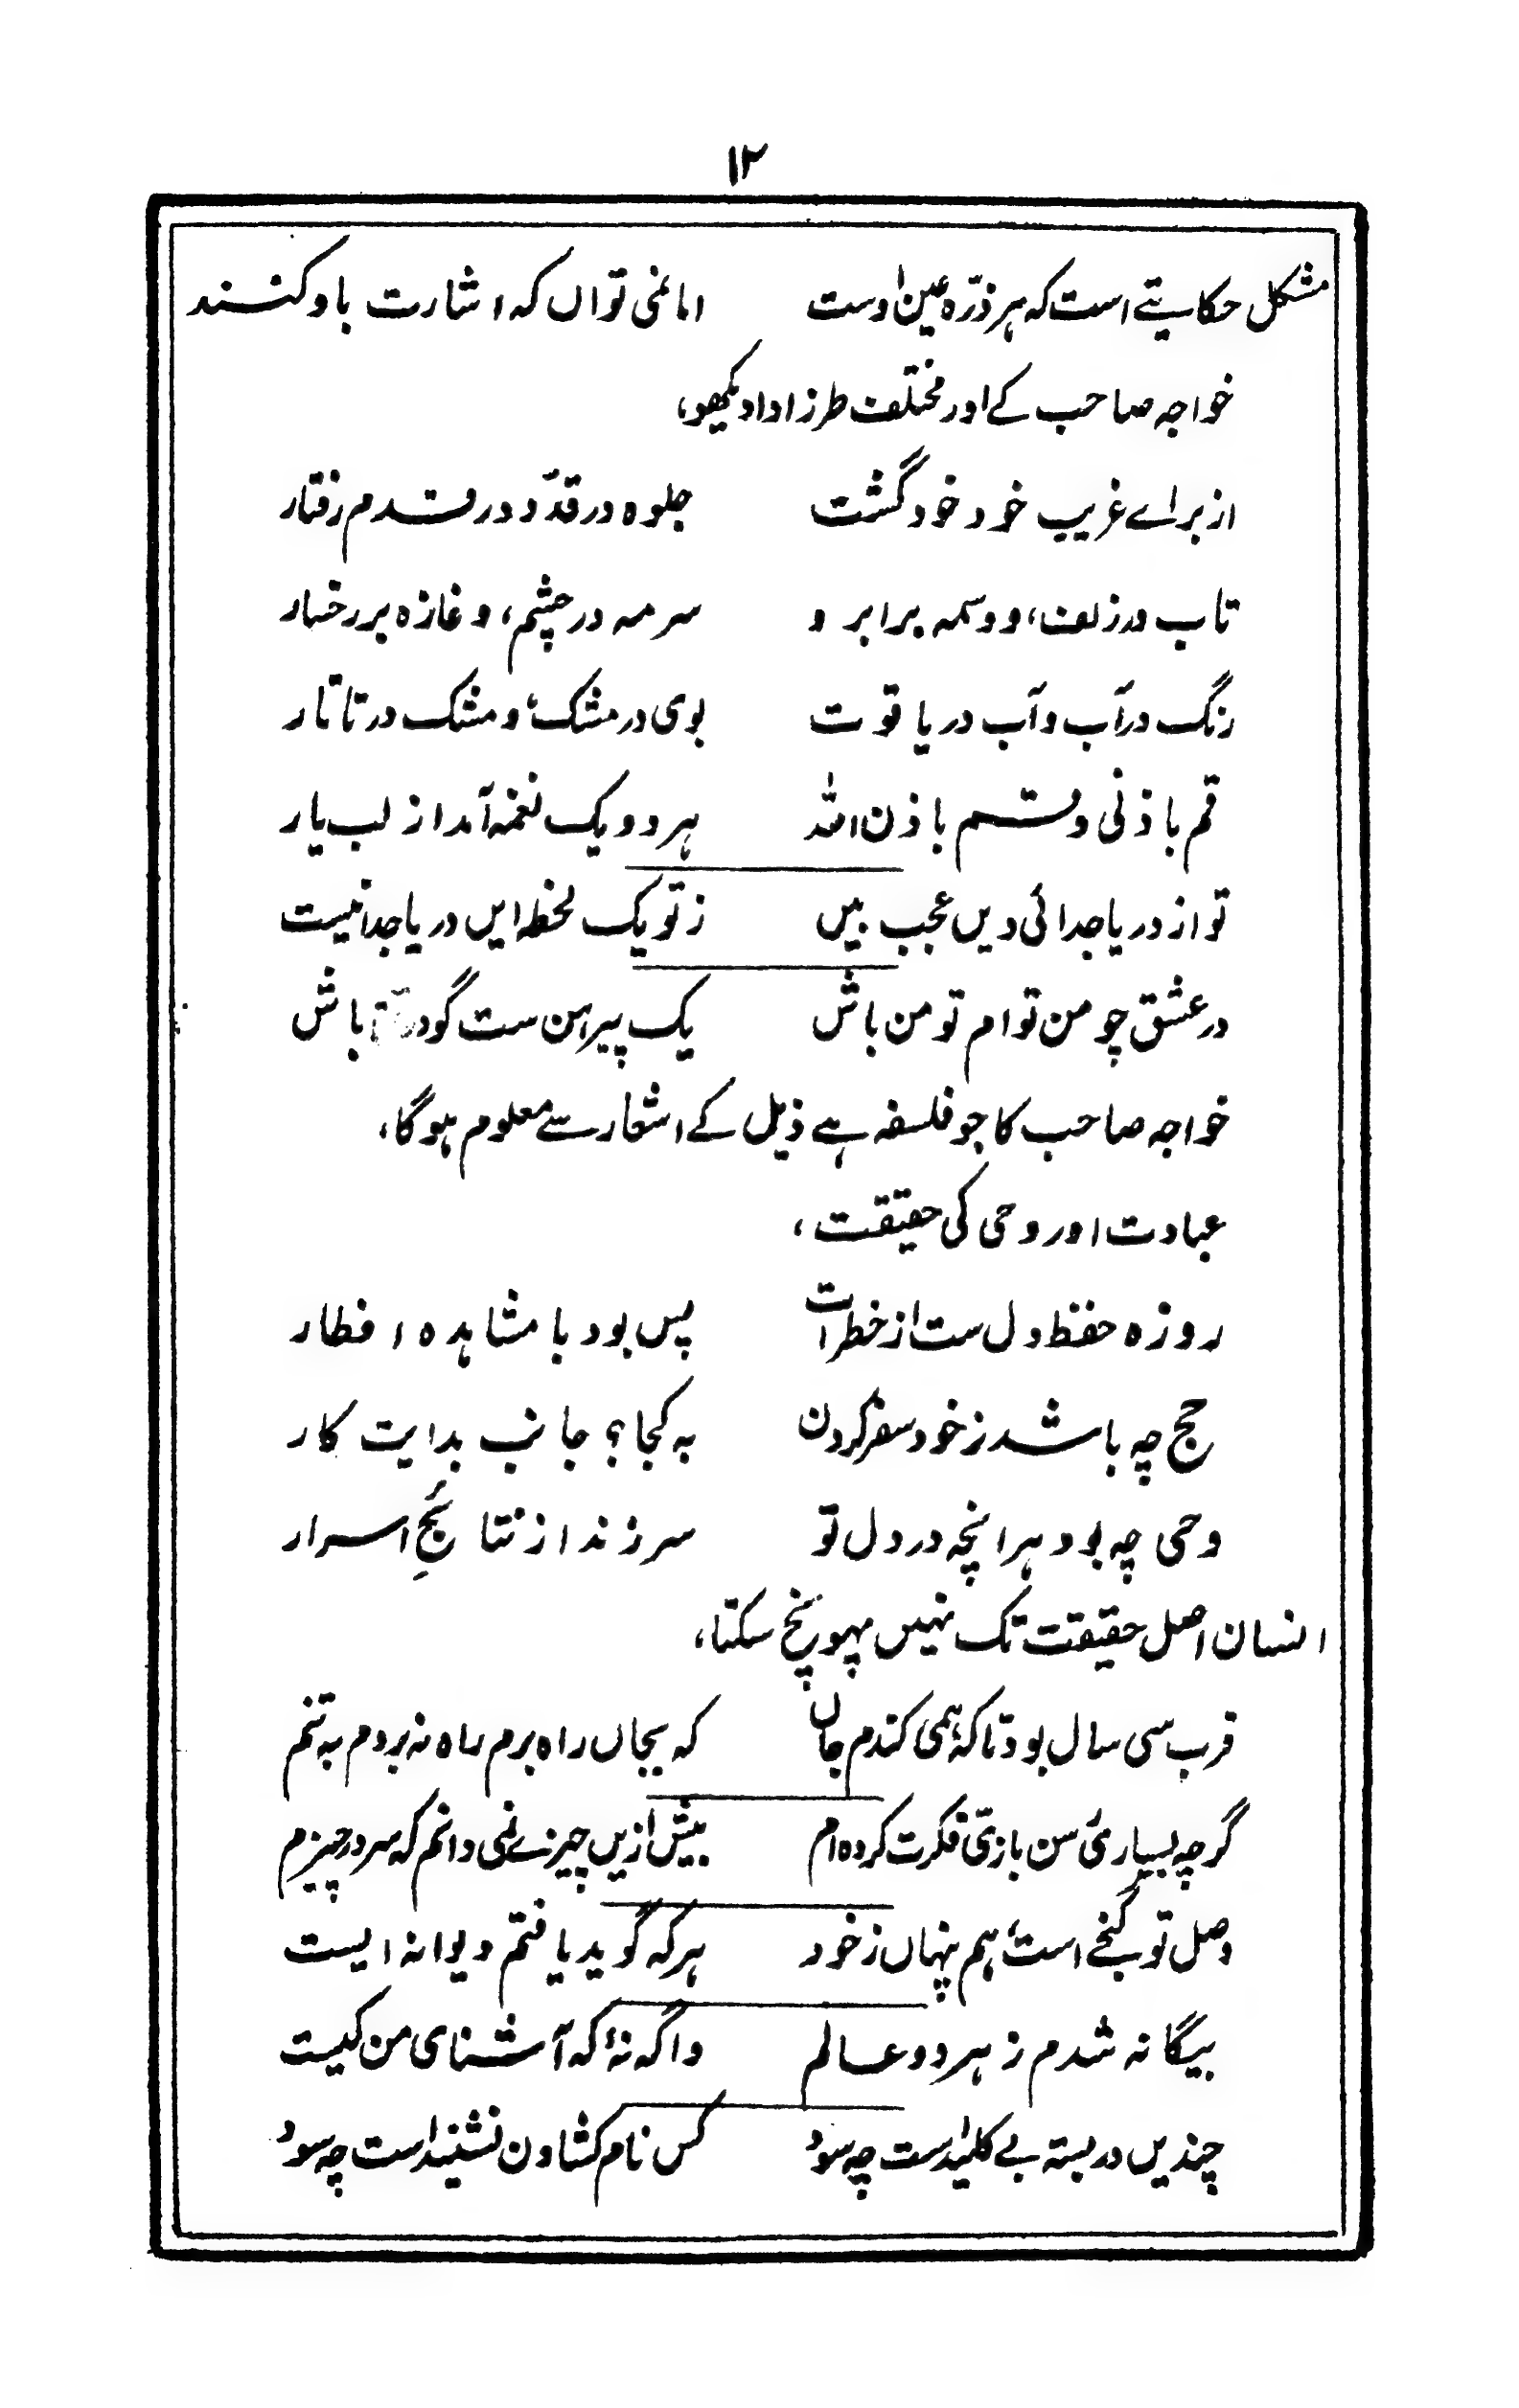 ۱۲
مشکل حکایتے است کہ ہر ذرّہ عین اوست اما نمی تواں کہ اشارت باو کنند
خواجہ صاحب کے اور مختلف طرز ادا دیکھو،
از برائے غریب خود خود گشت جلوہ در قدّ و در قدم رفتار
تاب در زلف، و وسمہ بر ابر و سرمہ در چشم، و غازہ بر رخسار
رنگ در آب و آب در یاقوت بوی در مشک، و مشک در تاتار
قم باذنی و قم باذن اللہ ہر دو یک نغمہ آمد از لب یار
تو از دریا جدائی ویں عجب بیں ز تو یک لحظہ ایں دریا جدا نیست
در عشق چو من توام تو من باش یک پیرہن ست گو در تن باش
خواجہ صاحب کا جو فلسفہ ہے ذیل کے اشعار سے معلوم ہوگا،
عبادت اور وحی کی حقیقت،
روزہ حفظ دل ست از خطرات پس بود با مشاہدہ افطار
حج چہ باشد ز خود سفر کردن بہ کجا؟ جانب بدایت کار
وحی چہ بود ہر انچہ در دل تو سر زند از نتائجِ اسرار
انسان اصل حقیقت تک نہیں پہونچ سکتا،
قرب سی سال بود تا کہ ہمی کندم جاں کہ بجاں راہ برم راہ نہ بردم بہ تنم
گرچہ بسیاری سن بازیِ فکرت کردہ ام بیش ازیں چیزے نمی دانم کہ سر در چیزم
وصل تو گنجے است، ہم پنہاں ز خود ہر کہ گوید یافتم دیوانہ ایست
بیگانہ شدم ز ہر دو عالم واگہ نہ کہ آشنای من کیست
چندیں در بستہ بے کلید است چہ سود کس نام کشادن نشنید است چہ سود